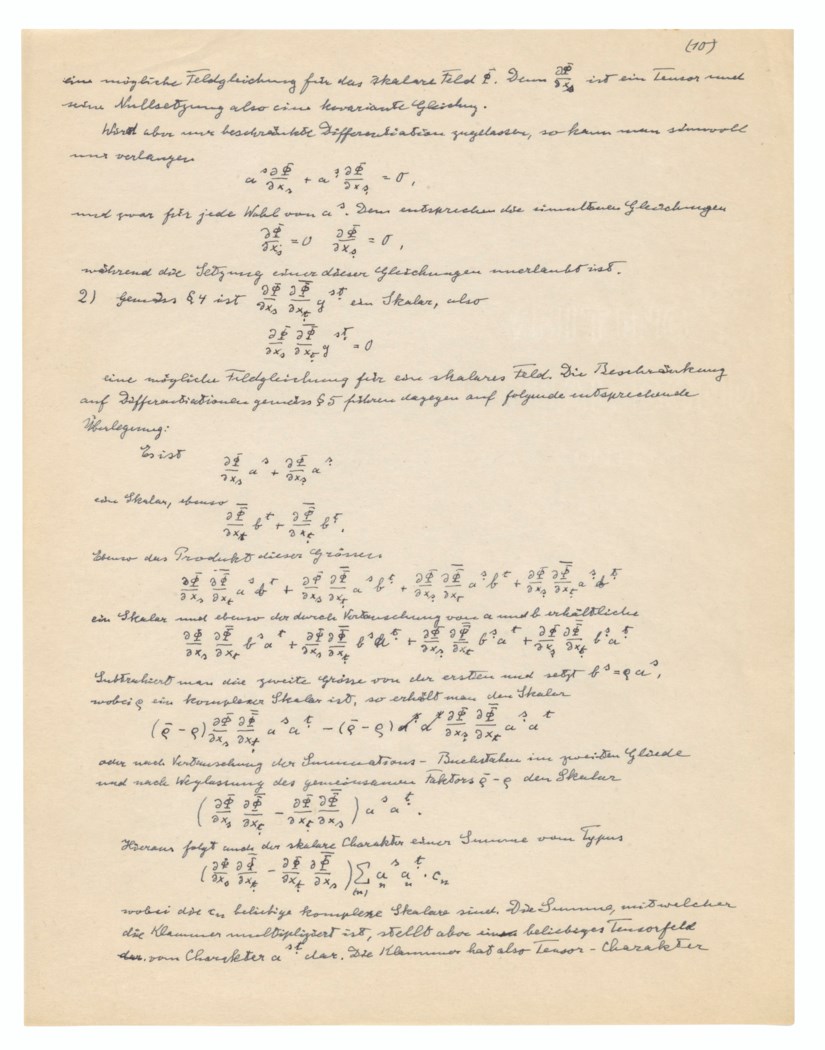 (10)
eine mögliche Feldgleichung für das skalare Feld Φ. Denn ∂Φ/∂x_s ist ein Tensor und
seine Nullsetzung also eine kovariante Gleichung.
Wird aber nur beschränkte Differentiation zugelassen, so kann man sinnvoll
nur verlangen
a^s ∂Φ/∂x_s + a^s̱ ∂Φ/∂x_s̱ = 0,
und zwar für jede Wahl von a^s. Dem entsprechen die simultanen Gleichungen
∂Φ/∂x_s = 0 ∂Φ/∂x_s̱ = 0,
während die Setzung einer dieser Gleichungen unerlaubt ist.
2) Gemäss § 4 ist ∂Φ/∂x_s ∂Φ̄/∂x_ṯ g^sṯ ein Skalar, also
∂Φ/∂x_s ∂Φ̄/∂x_ṯ g^sṯ = 0
eine mögliche Feldgleichung für ein skalares Feld. Die Beschränkung
auf Differentiationen gemäss § 5 führen dagegen auf folgende entsprechende
Überlegung:
Es ist ∂Φ/∂x_s a^s + ∂Φ/∂x_s̱ a^s̱
ein Skalar, ebenso
∂Φ̄/∂x_t b^t + ∂Φ̄/∂x_ṯ b^ṯ.
Ebenso das Produkt dieser Grössen
∂Φ/∂x_s ∂Φ̄/∂x_t a^s b^t + ∂Φ/∂x_s ∂Φ̄/∂x_ṯ a^s b^ṯ + ∂Φ/∂x_s̱ ∂Φ̄/∂x_t a^s̱ b^t + ∂Φ/∂x_s̱ ∂Φ̄/∂x_ṯ a^s̱ b^ṯ
ein Skalar und ebenso der durch Vertauschung von a und b erhältliche
∂Φ/∂x_s ∂Φ̄/∂x_t b^s a^t + ∂Φ/∂x_s ∂Φ̄/∂x_ṯ b^s a^ṯ + ∂Φ/∂x_s̱ ∂Φ̄/∂x_t b^s̱ a^t + ∂Φ/∂x_s̱ ∂Φ̄/∂x_ṯ b^s̱ a^ṯ
Subtrahiert man die zweite Grösse von der ersten und setzt b^s = ϱ a^s,
wobei ϱ ein komplexer Skalar ist, so erhält man den Skalar
(ϱ̄ - ϱ) ∂Φ/∂x_s ∂Φ̄/∂x_ṯ a^s a^ṯ - (ϱ̄ - ϱ) ∂Φ/∂x_s̱ ∂Φ̄/∂x_t a^s̱ a^t
oder nach Vertauschung der Summations-Buchstaben im zweiten Gliede
und nach Weglassung des gemeinsamen Faktors ϱ̄ - ϱ den Skalar
(∂Φ/∂x_s ∂Φ̄/∂x_ṯ - ∂Φ/∂x_ṯ ∂Φ̄/∂x_s) a^s a^ṯ.
Hieraus folgt auch der skalare Charakter einer Summe vom Typus
(∂Φ/∂x_s ∂Φ̄/∂x_ṯ - ∂Φ/∂x_ṯ ∂Φ̄/∂x_s) ∑_(n) a_n^s a_n^ṯ · c_n
wobei die c_n beliebige komplexe Skalare sind. Die Summe, mit welcher
die Klammer multipliziert ist, stellt aber ein beliebiges Tensorfeld
vom Charakter a^sṯ dar. Die Klammer hat also Tensor-Charakter